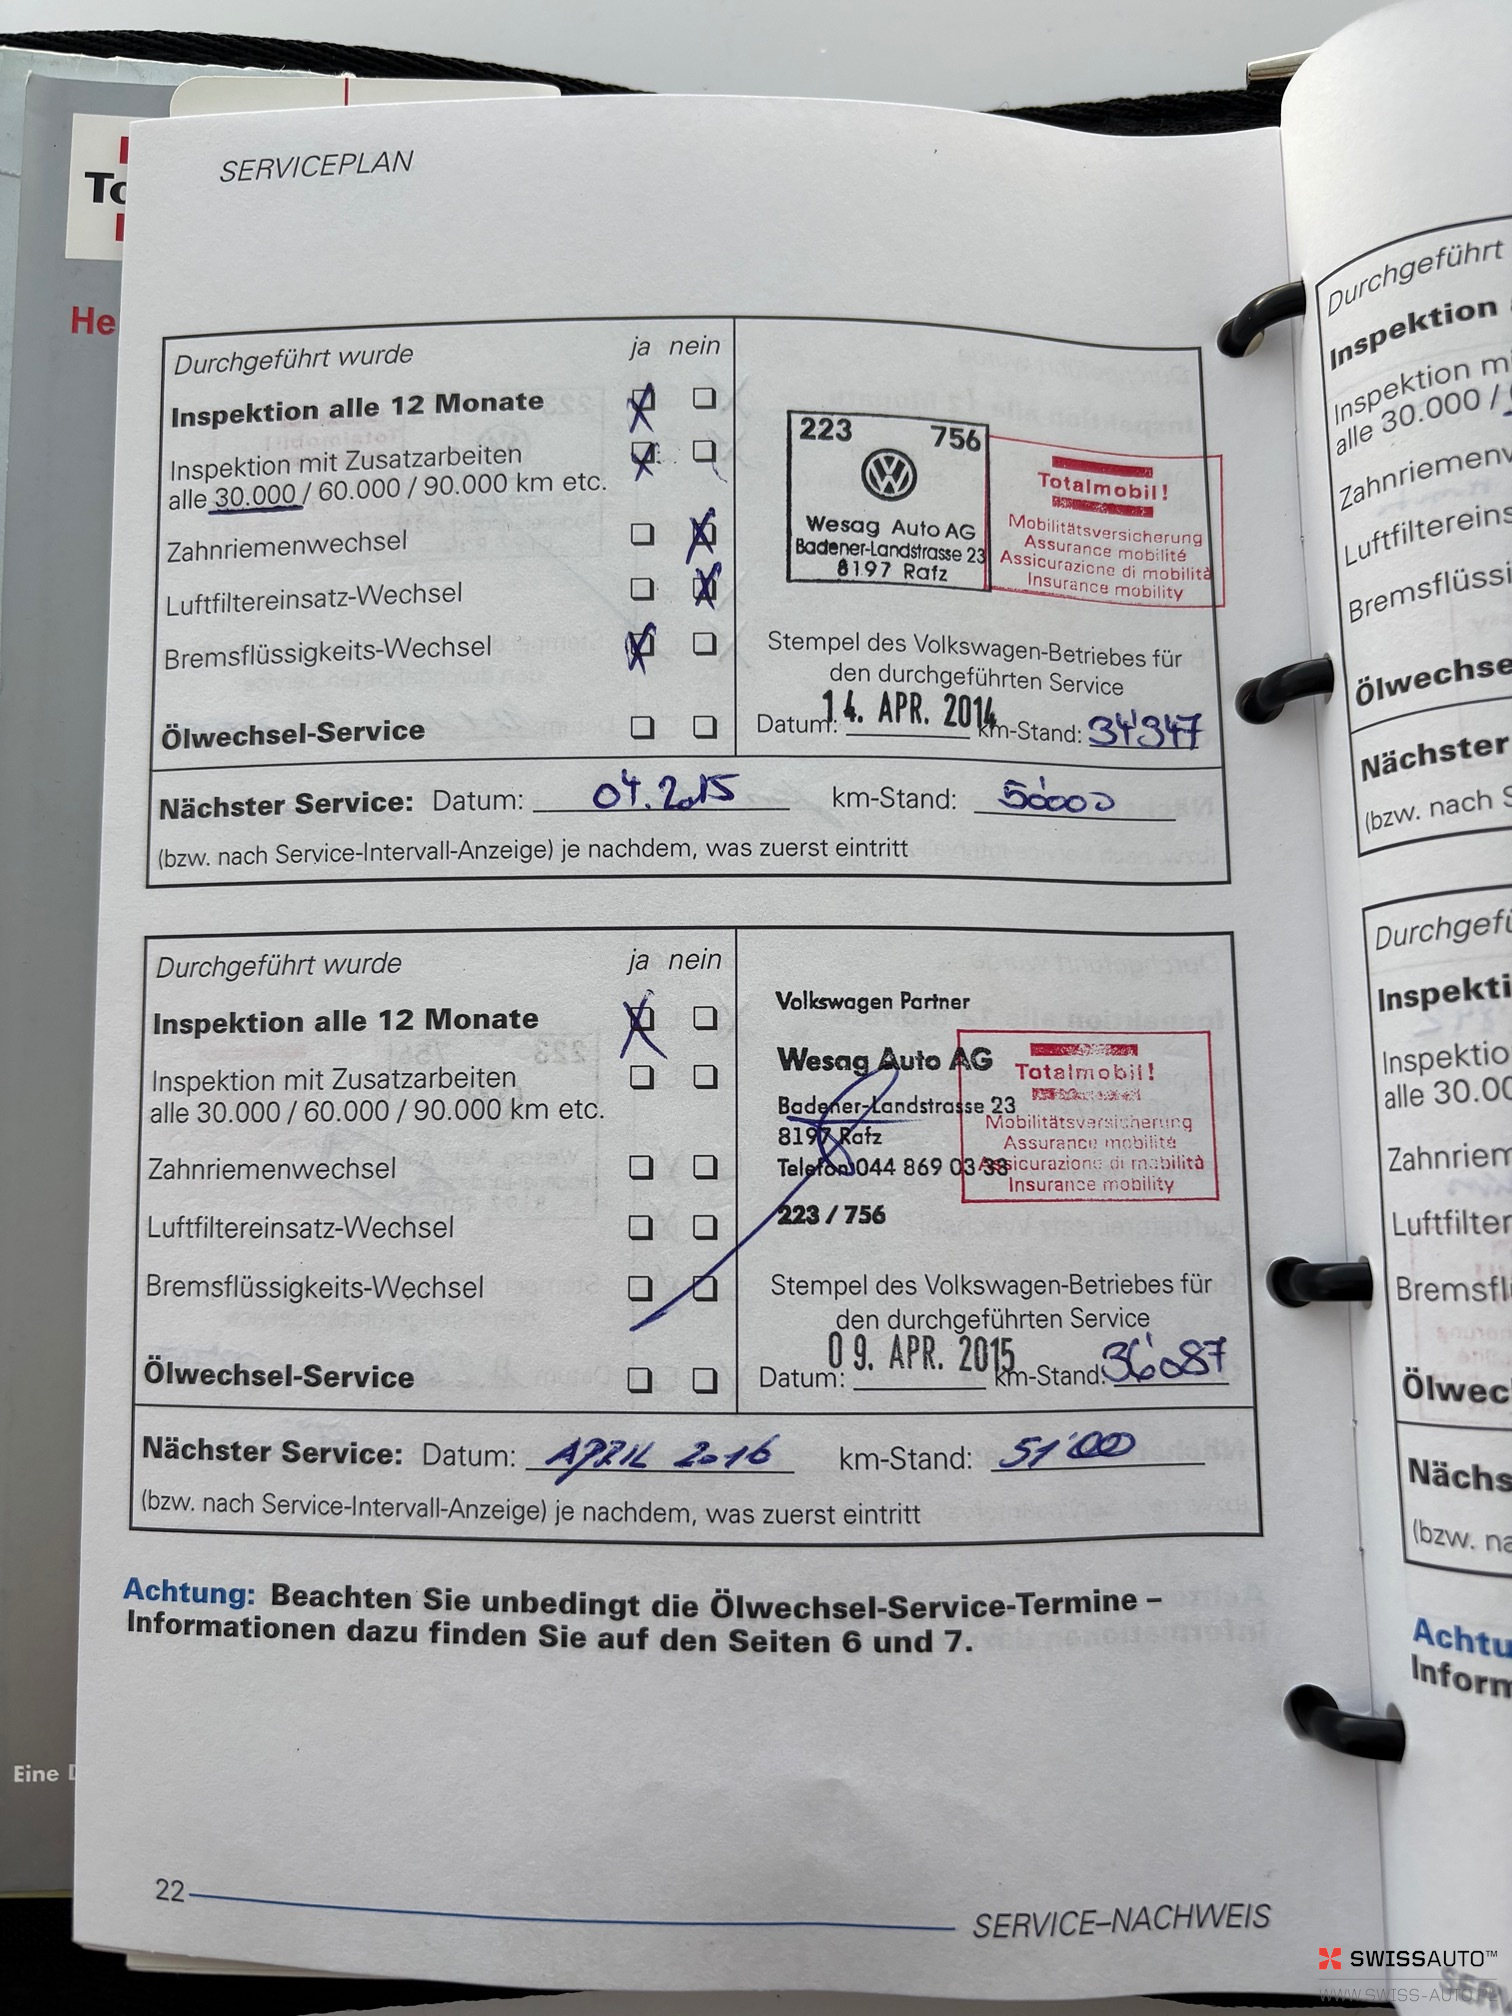 SERVICEPLAN
Durchgeführt wurde ja nein
Inspektion alle 12 Monate
Inspektion mit Zusatzarbeiten
alle 30.000 / 60.000 / 90.000 km etc.
Zahnriemenwechsel
Luftfiltereinsatz-Wechsel
Bremsflüssigkeits-Wechsel
Ölwechsel-Service
223 756
Wesag Auto AG
Badener-Landstrasse 23
8197 Rafz
Totalmobil!
Mobilitätsversicherung
Assurance mobilité
Assicurazione di mobilità
Insurance mobility
Stempel des Volkswagen-Betriebes für
den durchgeführten Service
Datum: 14. APR. 2014 km-Stand: 34'347
Nächster Service: Datum: 04.2015 km-Stand: 50'000
(bzw. nach Service-Intervall-Anzeige) je nachdem, was zuerst eintritt
Durchgeführt wurde ja nein
Inspektion alle 12 Monate
Inspektion mit Zusatzarbeiten
alle 30.000 / 60.000 / 90.000 km etc.
Zahnriemenwechsel
Luftfiltereinsatz-Wechsel
Bremsflüssigkeits-Wechsel
Ölwechsel-Service
Volkswagen Partner
Wesag Auto AG
Badener-Landstrasse 23
8197 Rafz
Telefon 044 869 03 38
223 / 756
Totalmobil!
Mobilitätsversicherung
Assurance mobilité
Assicurazione di mobilità
Insurance mobility
Stempel des Volkswagen-Betriebes für
den durchgeführten Service
Datum: 09. APR. 2015 km-Stand: 36'087
Nächster Service: Datum: APRIL 2016 km-Stand: 51'000
(bzw. nach Service-Intervall-Anzeige) je nachdem, was zuerst eintritt
Achtung: Beachten Sie unbedingt die Ölwechsel-Service-Termine –
Informationen dazu finden Sie auf den Seiten 6 und 7.
22
SERVICE–NACHWEIS
Durchgeführt
Inspektion
Inspektion
alle 30.000 /
Ölwechse
Nächster
(bzw. nach
Eine
SWISSAUTO™